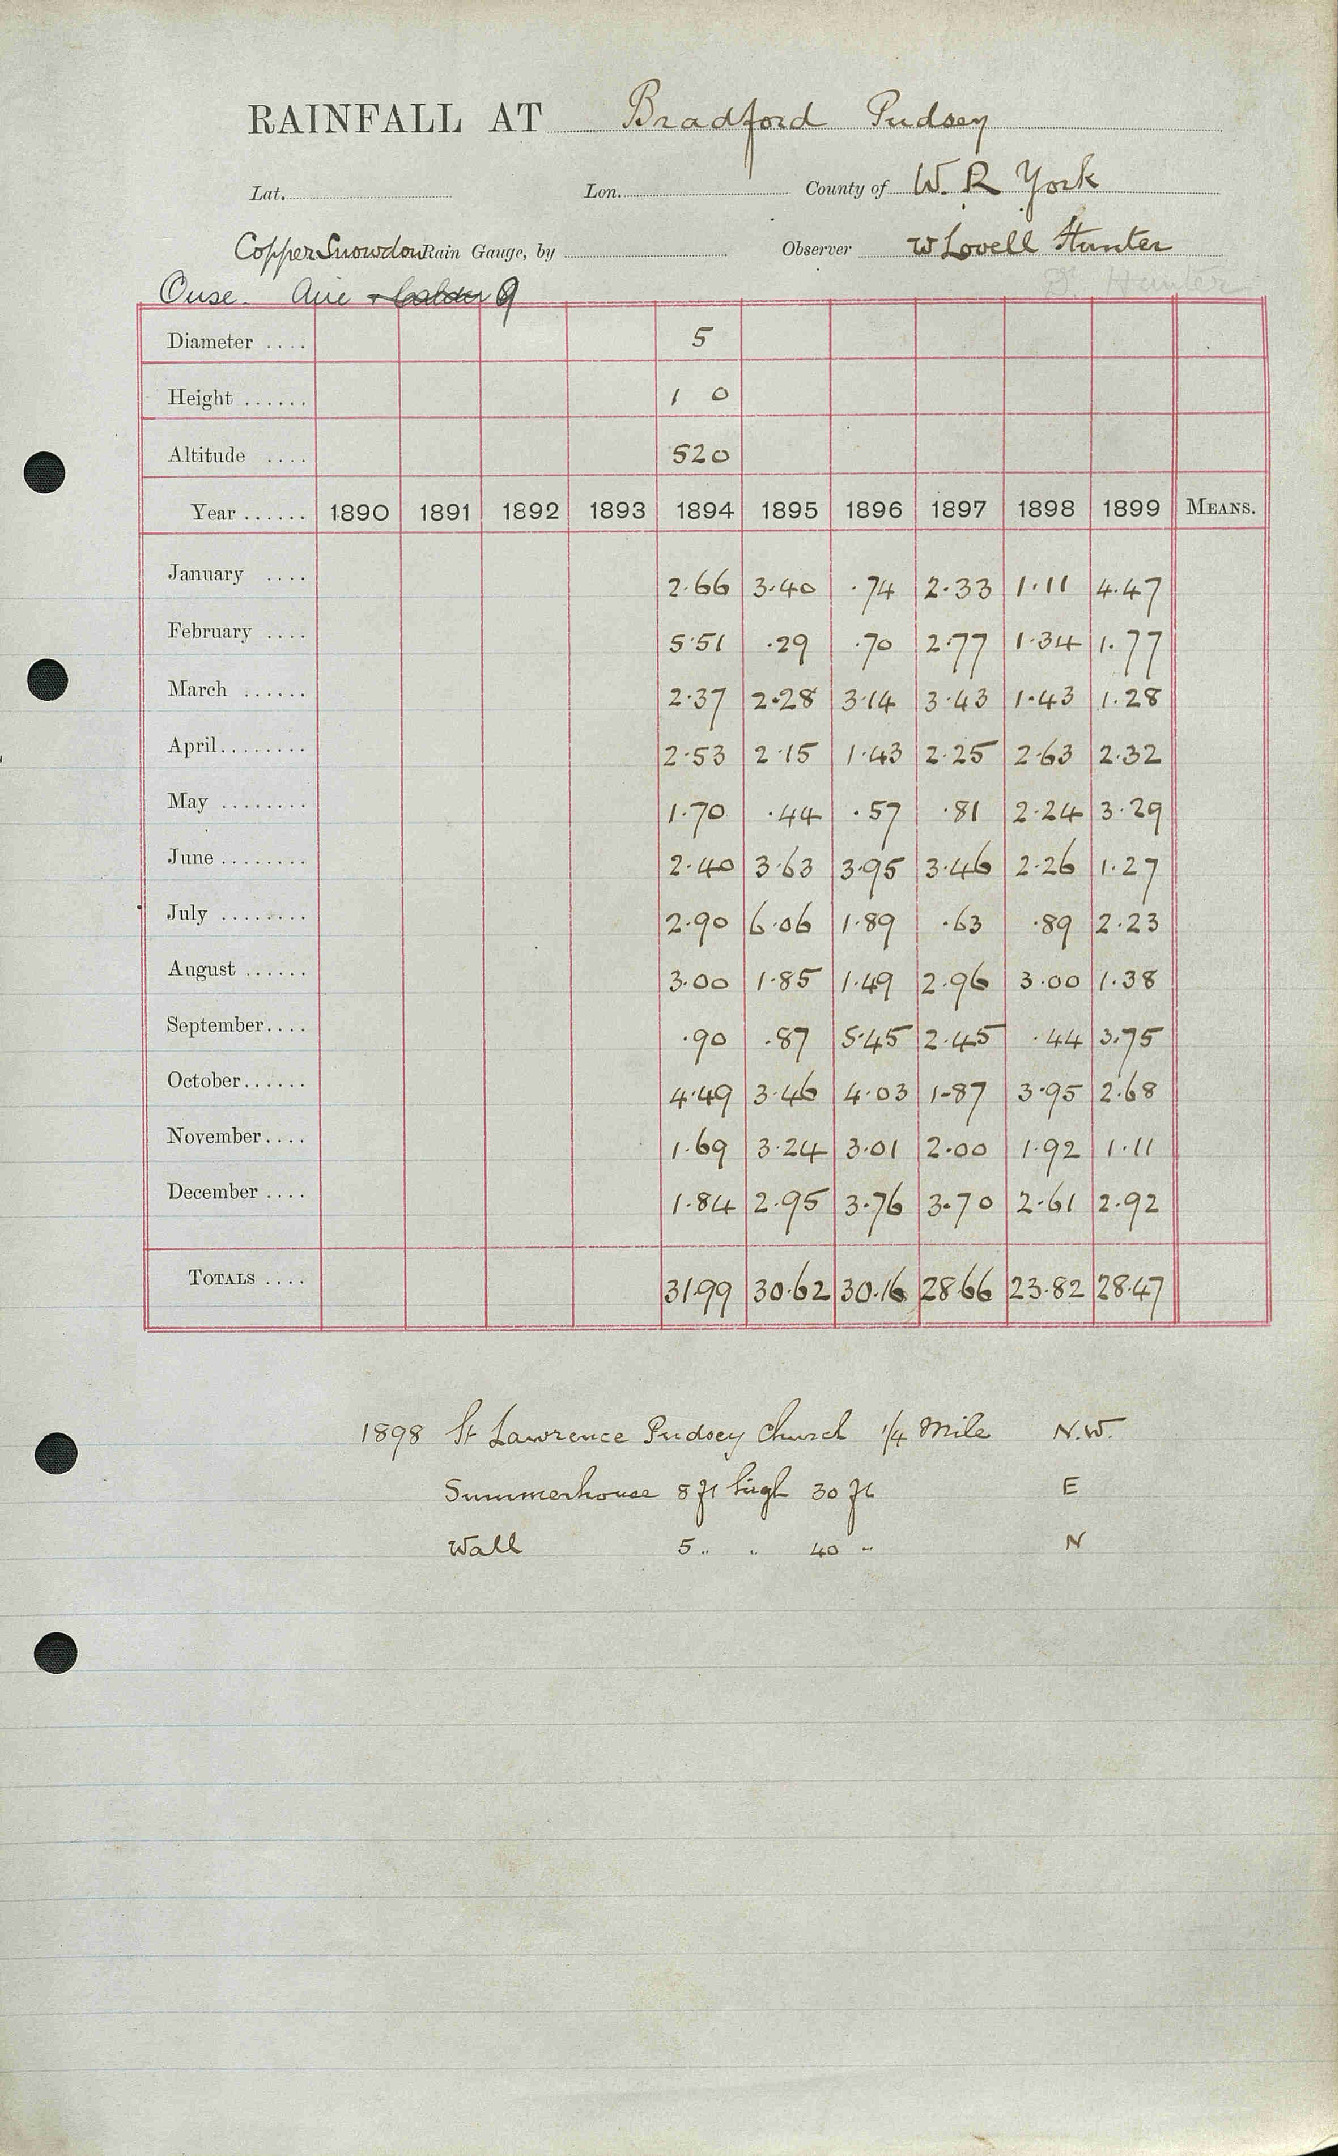 RAINFALL AT Bradford Pudsey
Lat. Lon. County of W. R York
Copper Snowdon Rain Gauge, by Observer W Lovell Hunter
Ouse. Aire + Calder 9
D. Hunter
Diameter .... 5
Height ...... 1 0
Altitude .... 520
Year ...... 1890 1891 1892 1893 1894 1895 1896 1897 1898 1899 MEANS.
January .... 2.66 3.40 .74 2.33 1.11 4.47
February .... 5.51 .29 .70 2.77 1.34 1.77
March ...... 2.37 2.28 3.14 3.43 1.43 1.28
April ........ 2.53 2.15 1.43 2.25 2.63 2.32
May ........ 1.70 .44 .57 .81 2.24 3.29
June ........ 2.40 3.63 3.95 3.46 2.26 1.27
July ........ 2.90 6.06 1.89 .63 .89 2.23
August ...... 3.00 1.85 1.49 2.96 3.00 1.38
September .... .90 .87 5.45 2.45 .44 3.75
October ...... 4.49 3.46 4.03 1.87 3.95 2.68
November .... 1.69 3.24 3.01 2.00 1.92 1.11
December .... 1.84 2.95 3.76 3.70 2.61 2.92
TOTALS .... 31.99 30.62 30.16 28.66 23.82 28.47
1898 St Lawrence Pudsey Church 1/4 Mile N.W.
Summerhouse 8 ft high 30 ft E
Wall 5 " " 40 " N